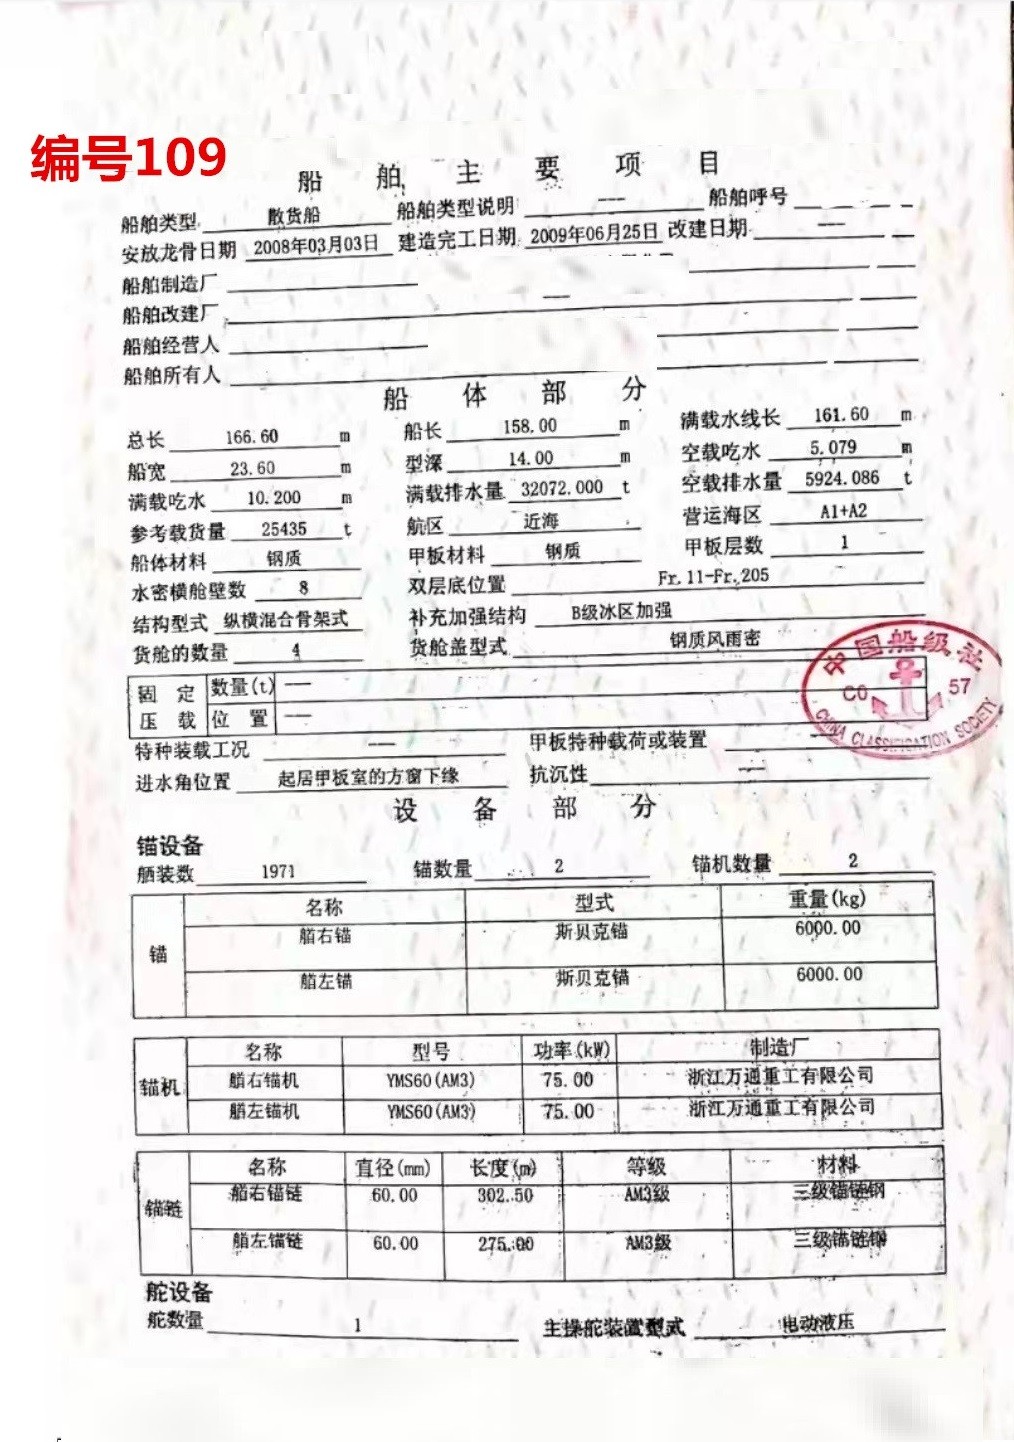 编号109
船舶主要项目
船舶类型 散货船 船舶类型说明 --- 船舶呼号
安放龙骨日期 2008年03月03日 建造完工日期 2009年06月25日 改建日期 ---
船舶制造厂
船舶改建厂 ---
船舶经营人
船舶所有人
船体部分
总长 166.60 m 船长 158.00 m 满载水线长 161.60 m
船宽 23.60 m 型深 14.00 m 空载吃水 5.079 m
满载吃水 10.200 m 满载排水量 32072.000 t 空载排水量 5924.086 t
参考载货量 25435 t 航区 近海 营运海区 A1+A2
船体材料 钢质 甲板材料 钢质 甲板层数 1
水密横舱壁数 8 双层底位置 Fr.11-Fr.205
结构型式 纵横混合骨架式 补充加强结构 B级冰区加强
货舱的数量 4 货舱盖型式 钢质风雨密
固定压载 数量(t) ---
位置 ---
中国船级社
CO 57
CHINA CLASSIFICATION SOCIETY
特种装载工况 --- 甲板特种载荷或装置 ---
进水角位置 起居甲板室的方窗下缘 抗沉性 ---
设备部分
锚设备
舾装数 1971 锚数量 2 锚机数量 2
锚 名称 型式 重量(kg)
艏右锚 斯贝克锚 6000.00
艏左锚 斯贝克锚 6000.00
锚机 名称 型号 功率(kW) 制造厂
艏右锚机 YMS60(AM3) 75.00 浙江万通重工有限公司
艏左锚机 YMS60(AM3) 75.00 浙江万通重工有限公司
锚链 名称 直径(mm) 长度(m) 等级 材料
艏右锚链 60.00 302.50 AM3级 三级锚链钢
艏左锚链 60.00 275.00 AM3级 三级锚链钢
舵设备
舵数量 1 主操舵装置型式 电动液压